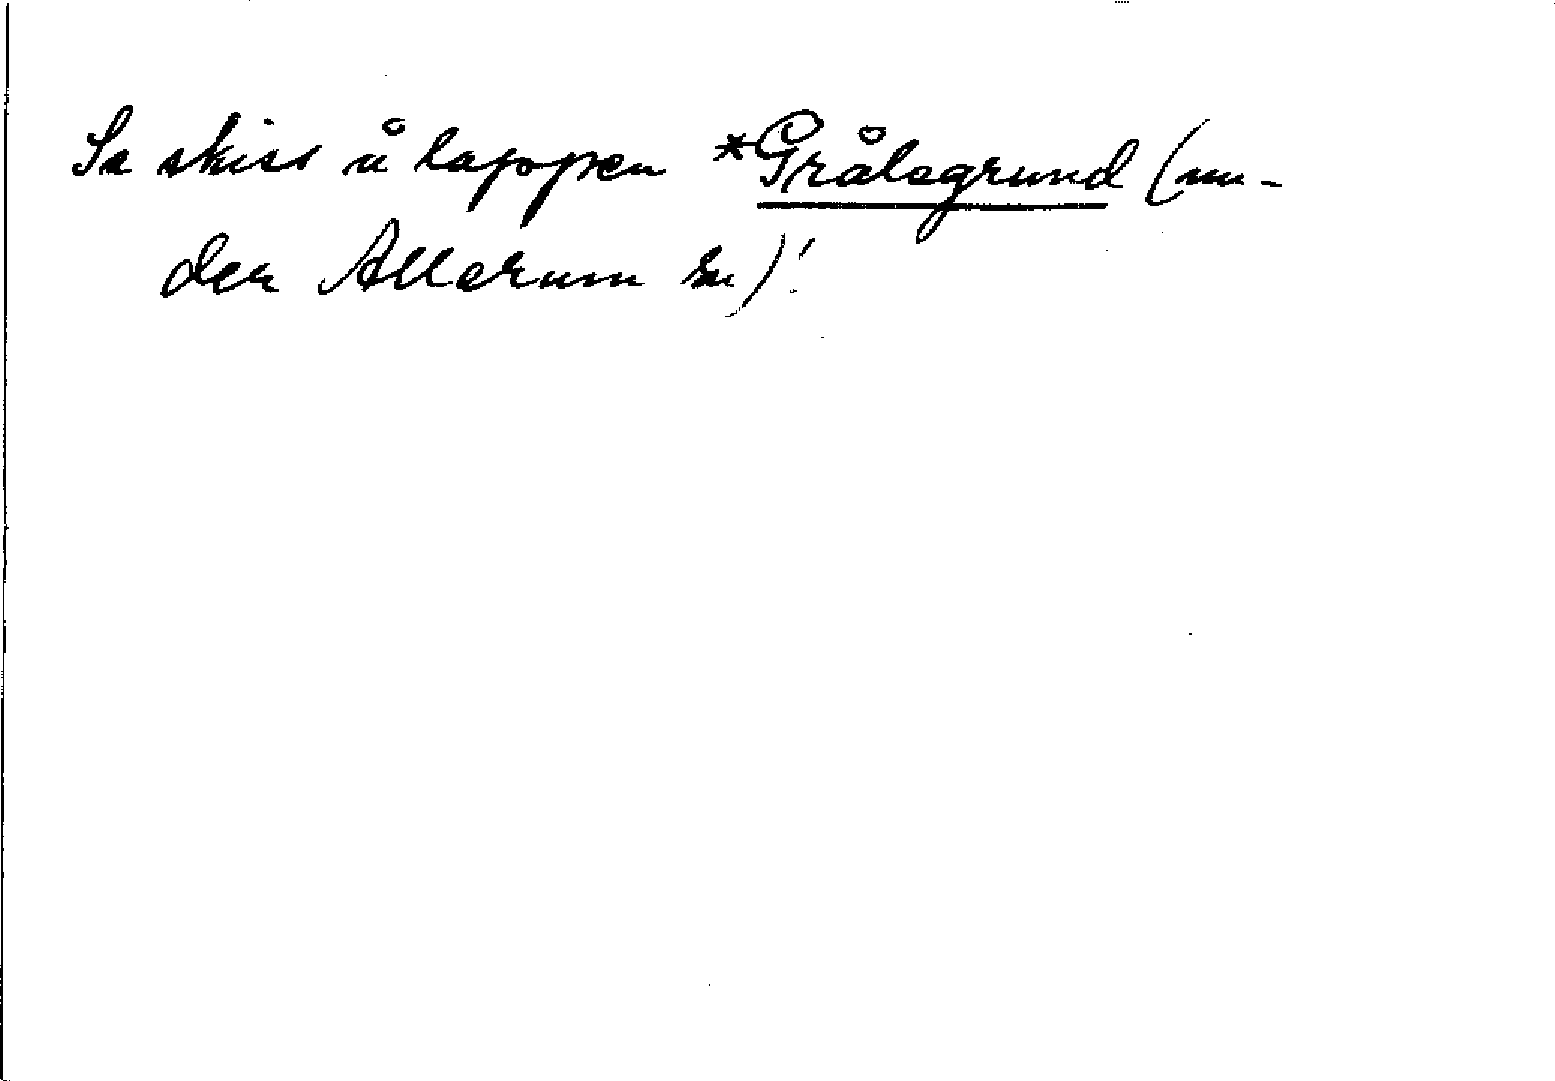 Se skiss å lappen *Grålsgrund (un-
der Allerum sn)!